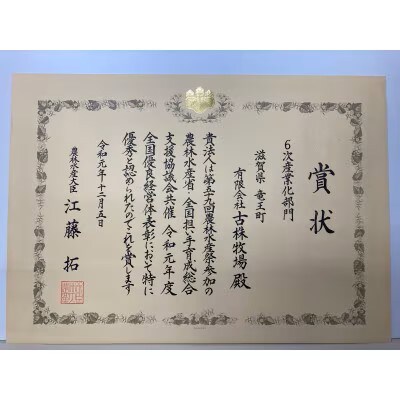 賞状
6次産業化部門
滋賀県 竜王町
有限会社古株牧場殿
貴法人は第五十九回農林水産祭参加の
農林水産省・全国担い手育成総合
支援協議会共催 令和元年度
全国優良経営体表彰において特に
優秀と認められたのでこれを賞します
令和元年十二月五日
農林水産大臣 江藤 拓